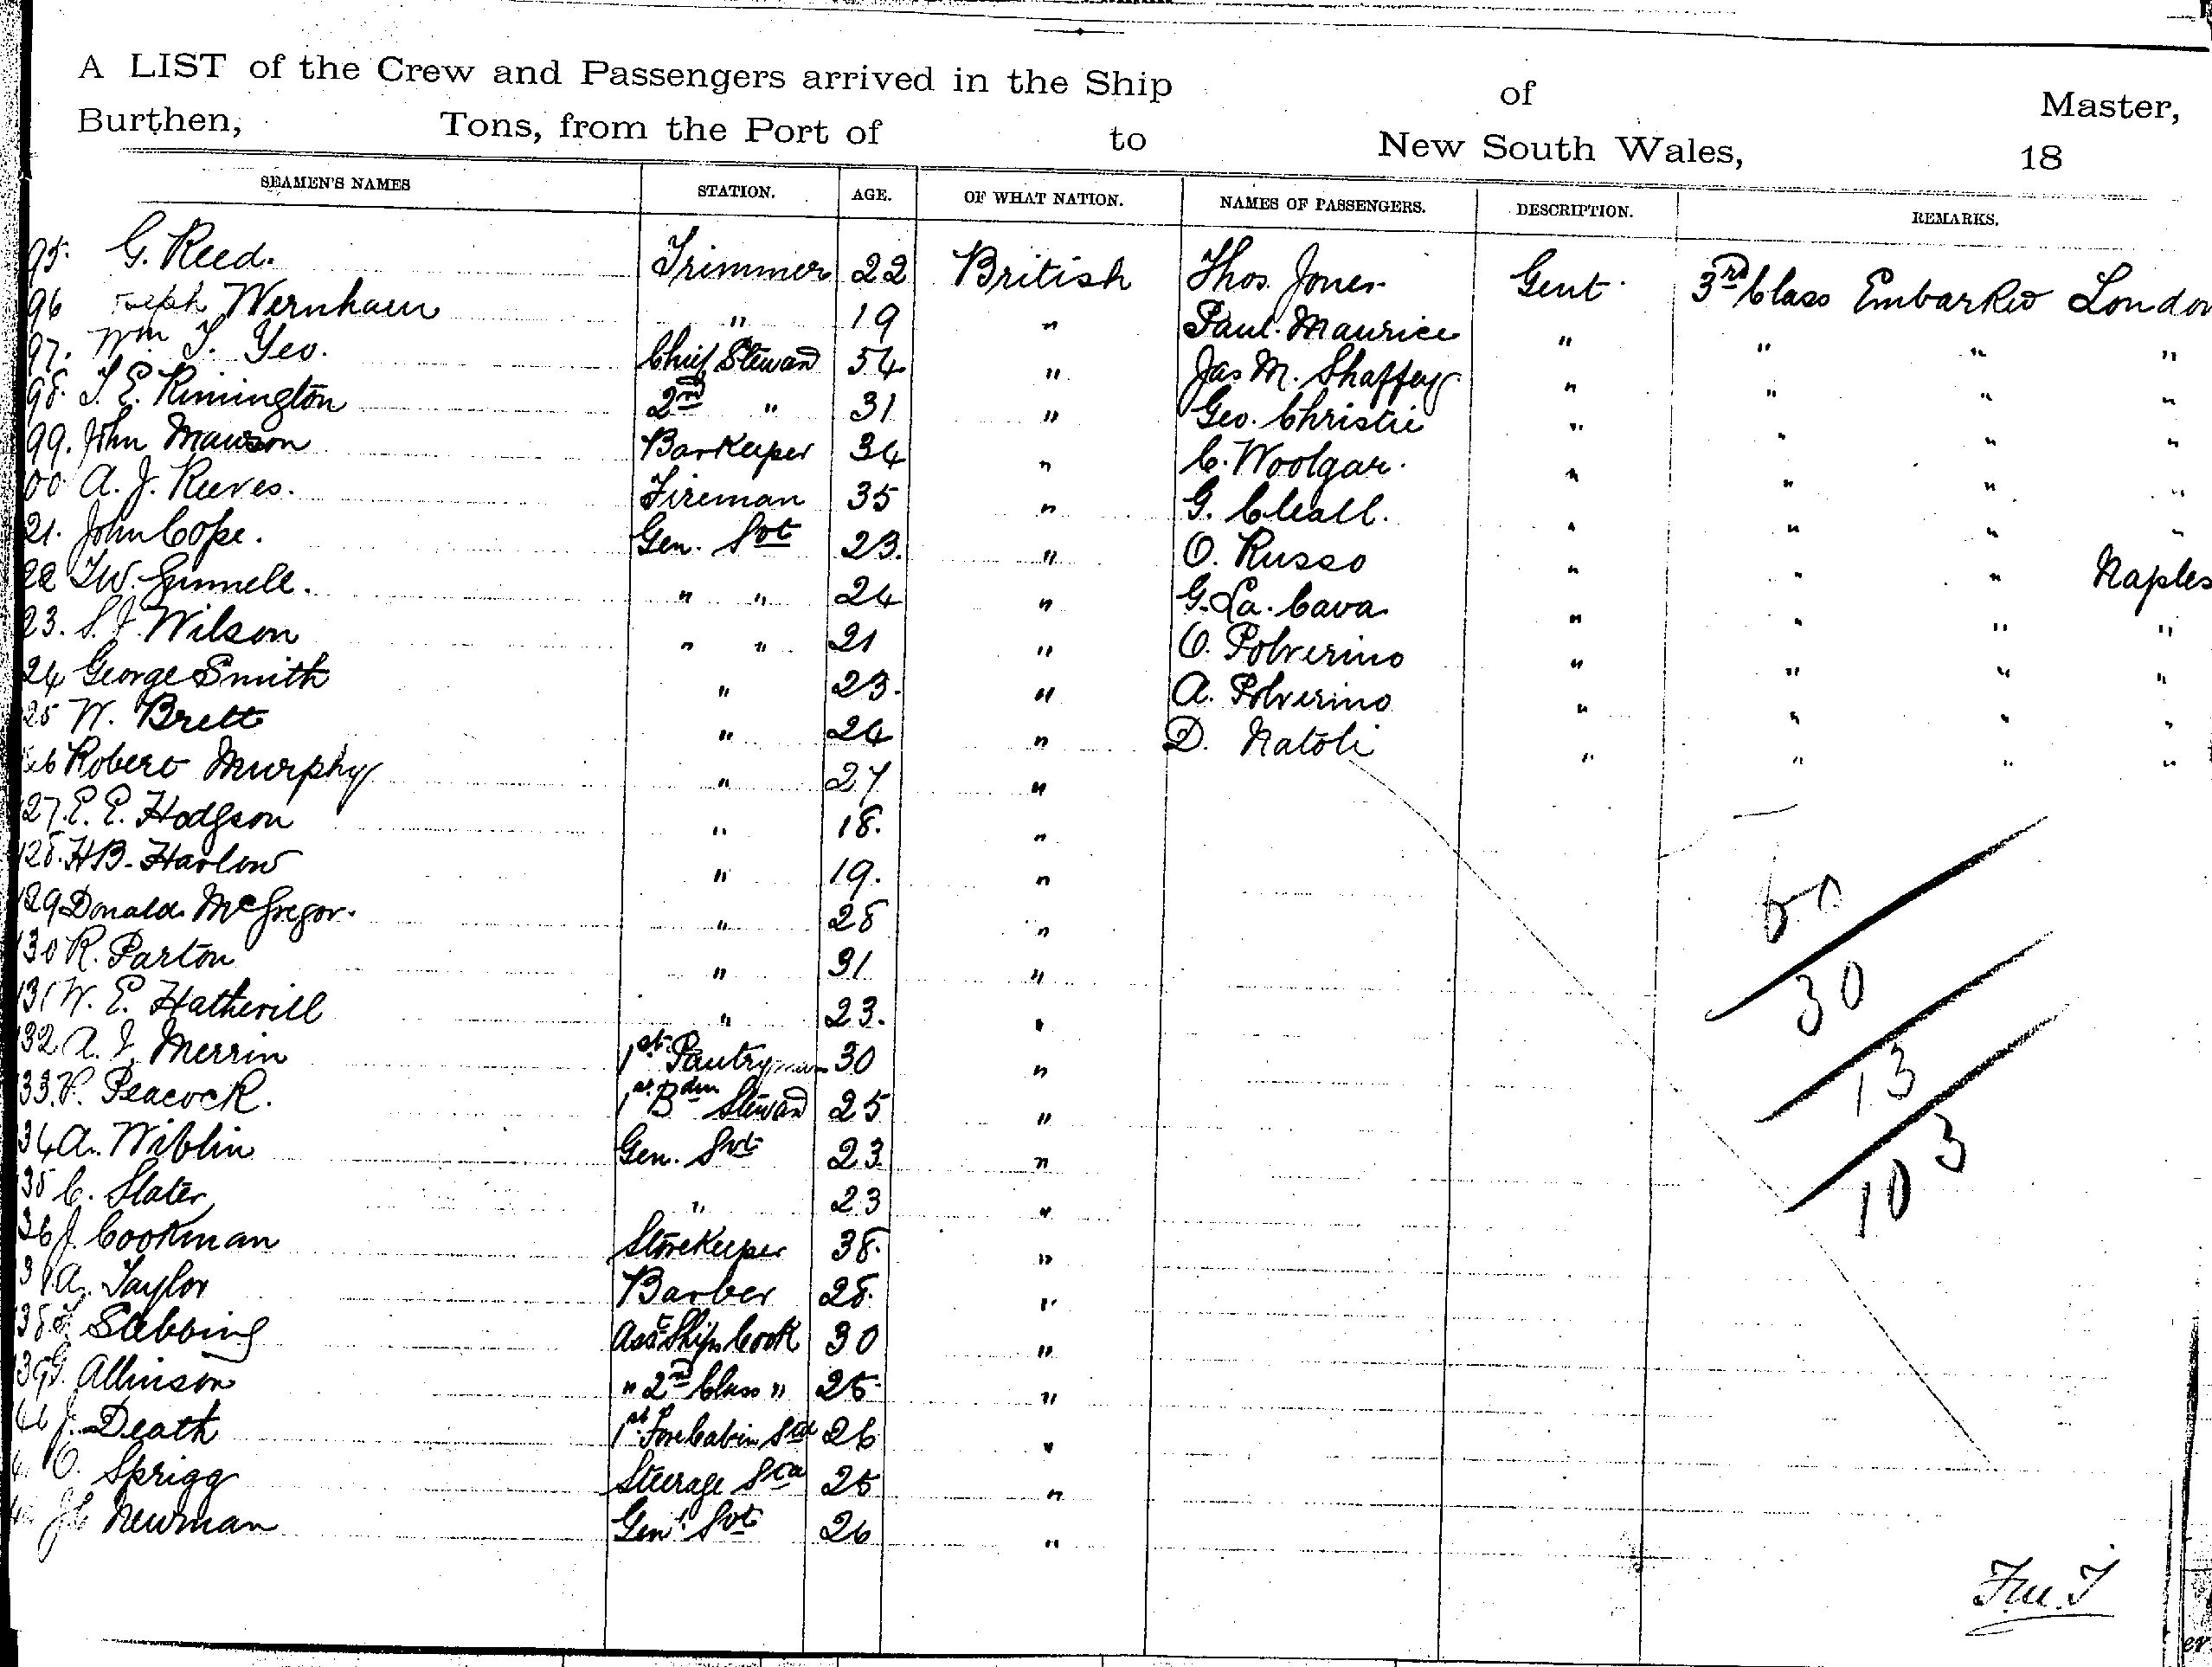 A LIST of the Crew and Passengers arrived in the Ship of Master,
Burthen, Tons, from the Port of to New South Wales, 18
SEAMEN'S NAMES STATION. AGE. OF WHAT NATION. NAMES OF PASSENGERS. DESCRIPTION. REMARKS.
95. G. Reed. Trimmer 22 British Thos. Jones Gent. 3rd Class Embarked London
96 Wernham " 19 " Paul Maurice " " " "
97. Wm T. Yeo. Chief Steward 54 " Jas M. Shaffey " " " "
98. T. E. Rimington 2nd " 31 " Geo. Christie " " " "
99. John Mawson Barkeeper 34 " C. Woolgar. " " " "
00 A. J. Reeves. Fireman 35 " G. Cleall. " " " "
21. John Cope. Gen. Svt 23. " O. Russo " " " Naples
22 T.W. Gunnell. " " 24 " G. La. Cava " " " "
23. S. J. Wilson " " 21 " O. Polverino " " " "
24 George Smith " 23. " A. Polverino " " " "
25 W. Brett " 24 " D. Natoli " " " "
26 Robert Murphy " 27 "
127. E. E. Hodgson " 18. "
128. H B. Harlow " 19. "
129 Donald McGregor. " 28 "
130 R. Parton " 31 "
131 W. E. Hatherill " 23. "
132 A. J. Merrin 1st Pantryman 30 "
133. P. Peacock. 1st Bdm Steward 25 "
34 A. Wiblin Gen. Svt 23 "
35 C. Slater " 23 "
36 J. Cookman Storekeeper 38. "
37. A. Taylor Barber 28. "
138. Stebbing Asst Ships Cook 30 "
139 G. Allinson " 2nd Class " 25 "
J. Death 1st Fore Cabin Std 26 "
O. Sprigg Steerage Std 25 "
J C Newman Genl. Svt 26 "
60
30
13
103